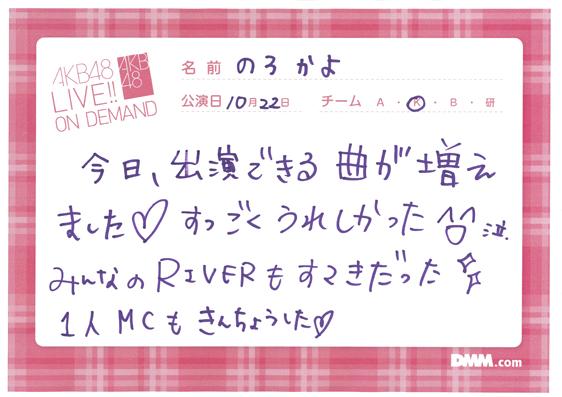 AKB48
LIVE!!
ON DEMAND
AKB
48
名前 のろかよ
公演日 10月22日 チーム A・K・B・研
今日、出演できる曲が増え
ました♡すっごくうれしかった 泣
みんなのRIVERもすてきだった
1人MCもきんちょうした♡
DMM.com